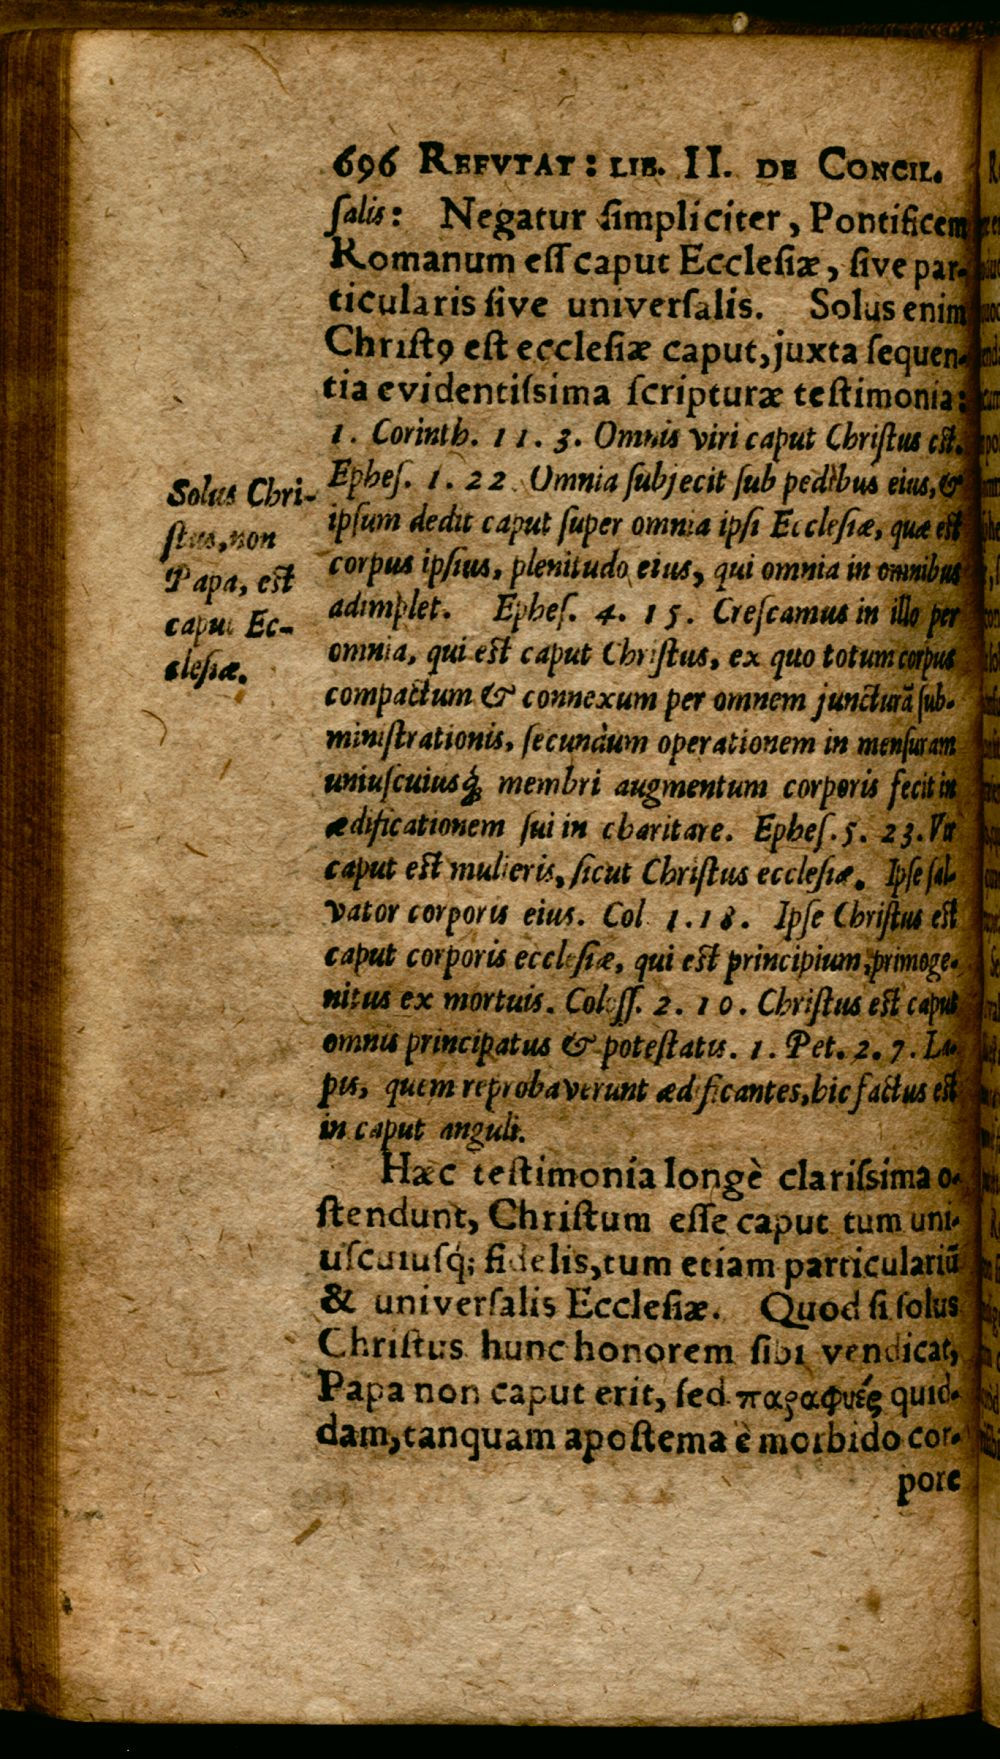 696 REFVTAT: LIB. II. DE CONCIL.
ſalis: Negatur ſimpliciter, Pontificem
Romanum eſſ caput Eccleſiæ, ſive par-
ticularis ſive univerſalis. Solus enim
Chriſtꝰ eſt eccleſiæ caput, juxta ſequen-
tia evidentiſsima ſcripturæ teſtimonia:
1. Corinth. 11. 3. Omnis viri caput Chriſtus eſt.
Epheſ. 1. 22. Omnia ſubjecit ſub pedibus eius, &
ipſum dedit caput ſuper omnia ipſi Eccleſiæ, quæ eſt
corpus ipſius, plenitudo eius, qui omnia in omnibus
adimplet. Epheſ. 4. 15. Creſcamus in illo per
omnia, qui eſt caput Chriſtus, ex quo totum corpus
compactum & connexum per omnem juncturā ſub-
miniſtrationis, ſecundum operationem in menſuram
uniuſcuiusq́; membri augmentum corporis fecit in
ædificationem ſui in charitate. Epheſ. 5. 23. Vir
caput eſt mulieris, ſicut Chriſtus eccleſiæ. Ipſe ſal-
vator corporis eius. Col. 1. 18. Ipſe Chriſtus eſt
caput corporis eccleſiæ, qui eſt principium, primoge-
nitus ex mortuis. Coloſſ. 2. 10. Chriſtus eſt caput
omnis principatus & poteſtatis. 1. Pet. 2. 7. La-
pis, quem reprobaverunt ædificantes, hic factus eſt
in caput anguli.
Hæc teſtimonia longè clariſsima o-
ſtendunt, Chriſtum eſſe caput tum uni-
uſcuiuſq́; fidelis, tum etiam particulariū
& univerſalis Eccleſiæ. Quod ſi ſolus
Chriſtus hunc honorem ſibi vendicat,
Papa non caput erit, ſed παραφυές quid-
dam, tanquam apoſtema è morbido cor-
pore
Solus Chri-
ſtus, non
Papa, eſt
caput Ec-
cleſiæ.